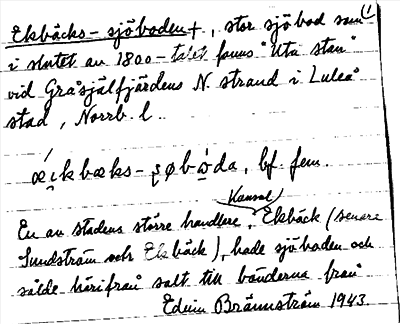 Ekbäcks-sjöboden +, stor sjöbod som 1)
i slutet av 1800-talet fanns "uta stan"
vid Gråsjälfjärdens N. strand i Luleå
stad, Norrb. l.
bf. fem.
Konsul
En av stadens större handlare, Ekbäck (senare
Sundström och Ekbäck), hade sjöboden och
sålde härifrån salt till bönderna från
Edvin Brännström 1943.